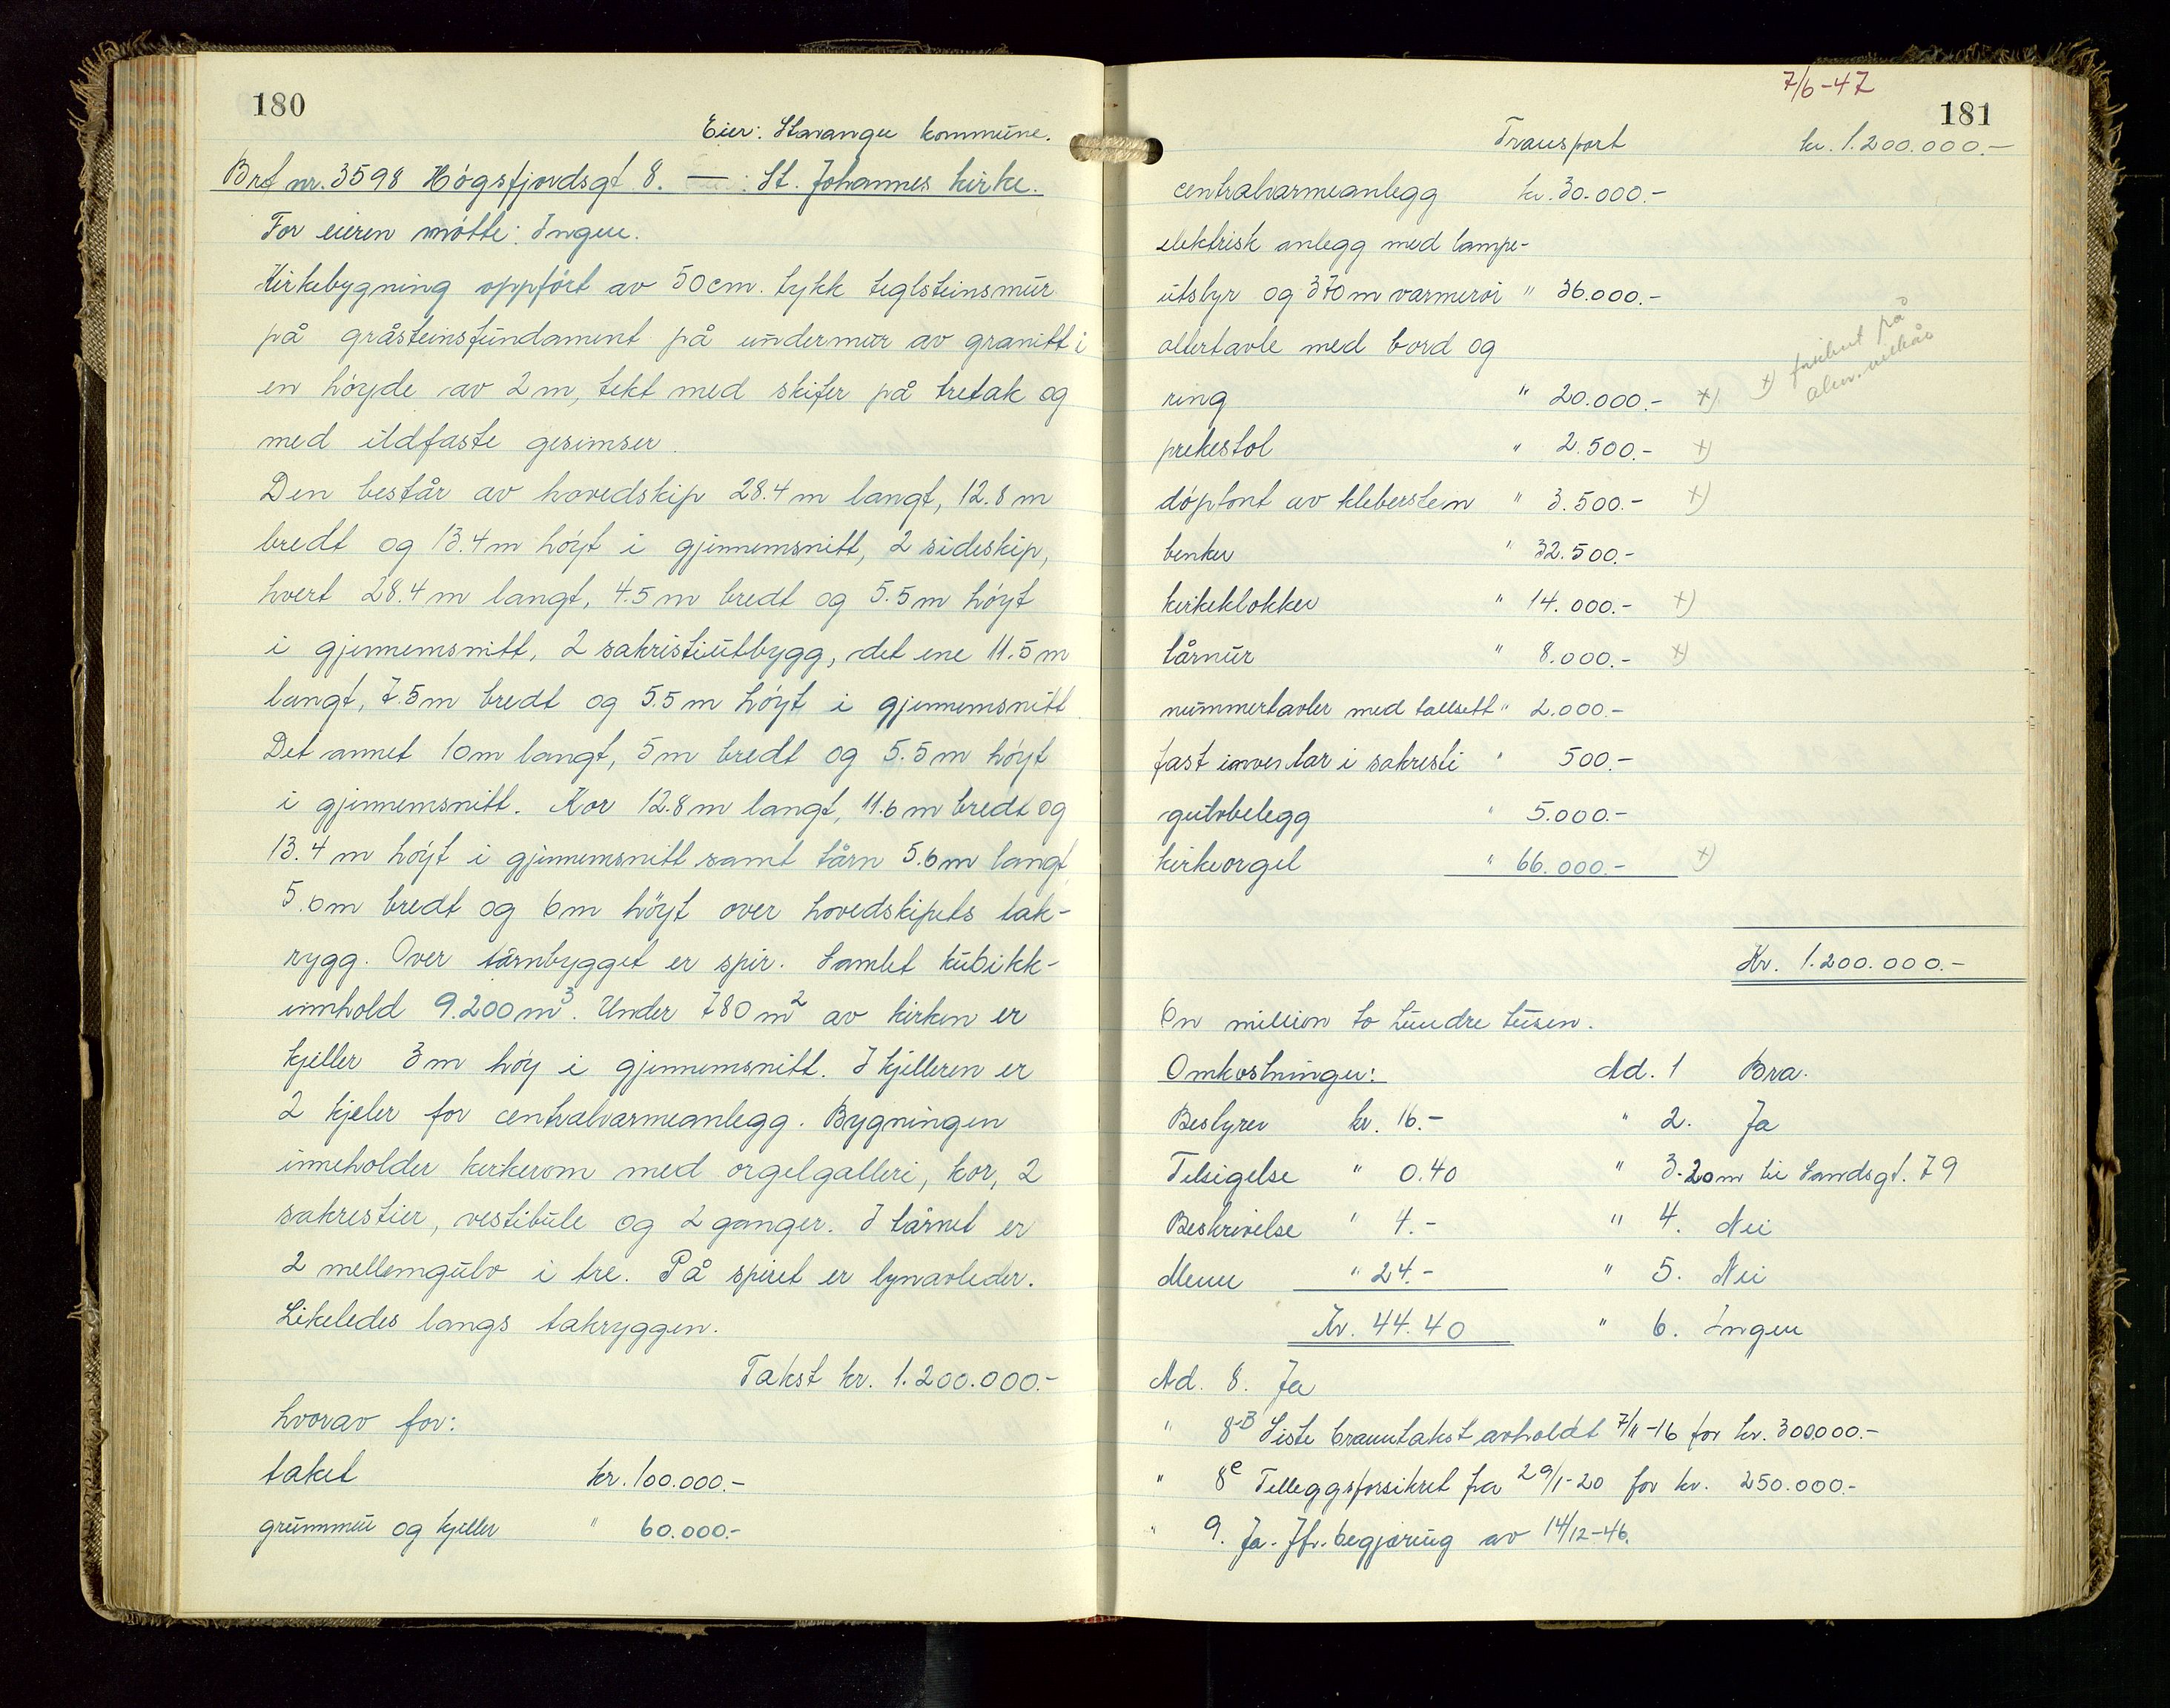 180
Eier: Stavanger kommune.
Brt nr. 3598 Högsfjordsgt 8. — St. Johannes kirke.
For eieren mötte: Ingen.
Kirkebygning oppfört av 50 cm. tykk teglsteinsmur
på gråsteinsfundament på undermur av granitt i
en höyde av 2 m, tekt med skifer på tretak og
med ildfaste gesimser.
Den består av hovedskip 28.4 m langt, 12.8 m
bredt og 13.4 m höyt i gjennemsnitt, 2 sideskip,
hvert 28.4 m langt, 4.5 m bredt og 5.5 m höyt
i gjennemsnitt, 2 sakristiutbygg, det ene 11.5 m
langt, 7.5 m bredt og 5.5 m höyt i gjennemsnitt.
Det annet 10 m langt, 5 m bredt og 5.5 m höyt
i gjennemsnitt. Kor 12.8 m langt, 11.6 m bredt og
13.4 m höyt i gjennemsnitt samt tårn 5.6 m langt,
5.6 m bredt og 6 m höyt over hovedskipets tak-
rygg. Over tårnbygget er spir. Samlet kubikk-
innhold 9.200 m³. Under 780 m² av kirken er
kjeller 3 m höy i gjennemsnitt. I kjelleren er
2 kjeler for centralvarmeanlegg. Bygningen
inneholder kirkerom med orgelgalleri, kor, 2
sakrestier, vestibule og 2 ganger. I tårnet er
2 mellemgulv i tre. På spiret er lynavleder.
Likeledes langs takryggen.
Takst kr. 1.200.000.-
hvorav for:
taket kr. 100.000.-
grunnmur og kjeller " 60.000.-
7/6-47
181
Transport kr. 1.200.000.-
centralvarmeanlegg kr. 30.000.-
elektrisk anlegg med lampe-
utstyr og 370 m varmerör " 36.000.-
altertavle med bord og
ring " 20.000.- +) +) forsikret på
alm. vilkår
prekestol " 2.500.- +)
döpfont av kleberstein " 3.500.- +)
benker " 32.500.-
kirkeklokker " 14.000.- +)
tårnur " 8.000.- +)
nummertavler med tallsett " 2.000.-
fast inventar i sakresti " 500.-
gulvbelegg " 5.000.-
kirkeorgel " 66.000.- +)
Kr. 1.200.000.-
En million to hundre tusen.
Omkostninger: Ad. 1 Bra.
Bestyrer kr. 16.- " 2. Ja
Tilsigelse " 0.40 " 3. 20 m til Sandsgt. 79
Beskrivelse " 4.- " 4. Nei
Menn " 24.- " 5. Nei
Kr. 44.40 " 6. Ingen
Ad. 8. Ja
" 8B Siste branntakst avholdt 7/11-16 for kr. 300.000.-
" 8e Tilleggsforsikret fra 29/1-20 for kr. 250.000.-
" 9. Ja. Jfr. begjæring av 14/12-46.